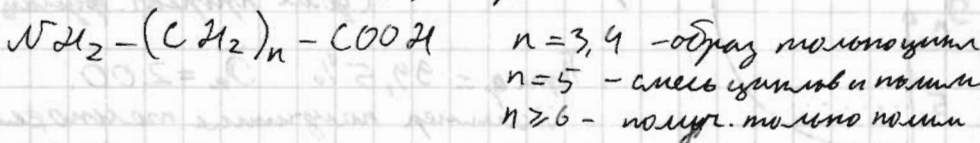 NH₂ – (CH₂)ₙ – COOH n = 3,4 – образ только цикл
n = 5 – смесь циклов и полим
n ≥ 6 – получ. только полим